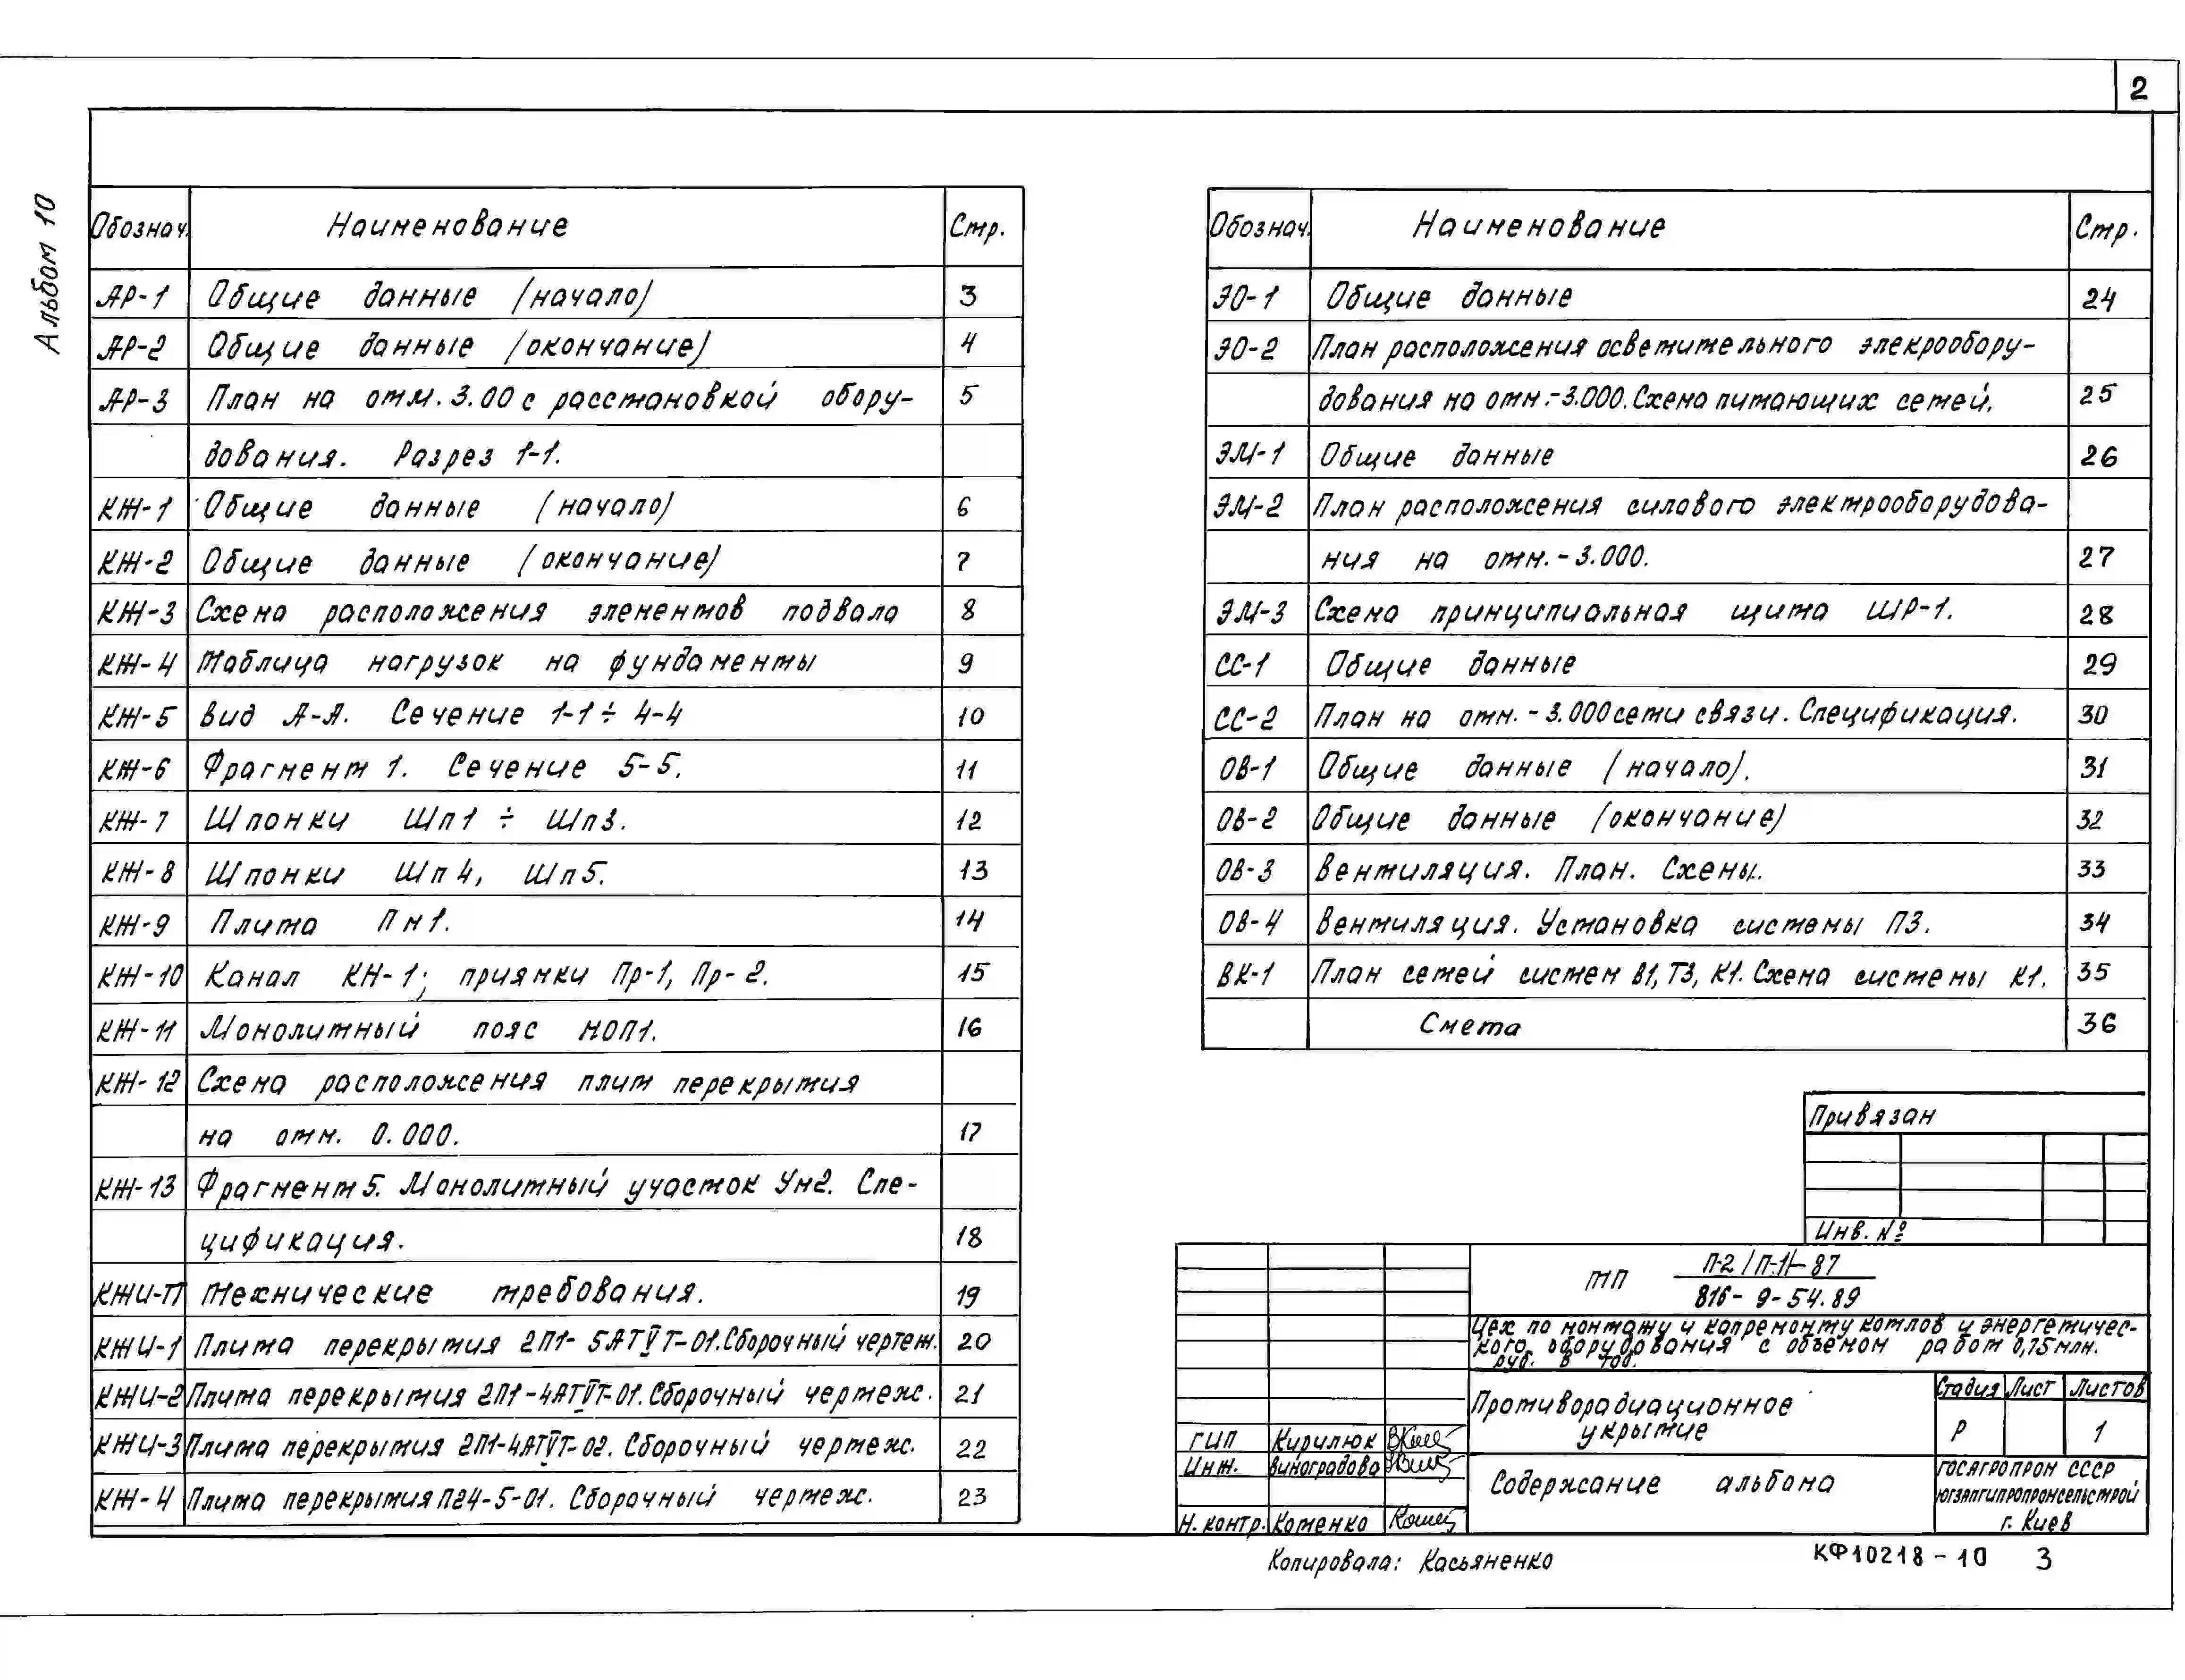 2
Альбом 10
Обознач. Наименование Стр.
АР-1 Общие данные (начало) 3
АР-2 Общие данные (окончание) 4
АР-3 План на отм. 3.00 с расстановкой обору- 5
дования. Разрез 1-1.
КЖ-1 Общие данные (начало) 6
КЖ-2 Общие данные (окончание) 7
КЖ-3 Схема расположения элементов подвала 8
КЖ-4 Таблица нагрузок на фундаменты 9
КЖ-5 Вид А-А. Сечение 1-1÷4-4 10
КЖ-6 Фрагмент 1. Сечение 5-5. 11
КЖ-7 Шпонки Шп1 ÷ Шп3. 12
КЖ-8 Шпонки Шп4, Шп5. 13
КЖ-9 Плита Пм1. 14
КЖ-10 Канал КН-1; приямки Пр-1, Пр-2. 15
КЖ-11 Монолитный пояс МОП1. 16
КЖ-12 Схема расположения плит перекрытия
на отм. 0.000. 17
КЖ-13 Фрагмент 5. Монолитный участок Ум2. Спе-
цификация. 18
КЖИ-ТТ Технические требования. 19
КЖИ-1 Плита перекрытия 2П1-5АТV̄Т-01. Сборочный чертеж. 20
КЖИ-2 Плита перекрытия 2П1-4АТV̄Т-01. Сборочный чертеж. 21
КЖИ-3 Плита перекрытия 2П1-4АТV̄Т-02. Сборочный чертеж. 22
КЖ-4 Плита перекрытия П24-5-01. Сборочный чертеж. 23
Обознач. Наименование Стр.
ЭО-1 Общие данные 24
ЭО-2 План расположения осветительного элекрообору-
дования на отм.-3.000. Схема питающих сетей. 25
ЭМ-1 Общие данные 26
ЭМ-2 План расположения силового электрооборудова-
ния на отм.-3.000. 27
ЭМ-3 Схема принципиальная щита ШР-1. 28
СС-1 Общие данные 29
СС-2 План на отм.-3.000 сети связи. Спецификация. 30
ОВ-1 Общие данные (начало). 31
ОВ-2 Общие данные (окончание) 32
ОВ-3 Вентиляция. План. Схемы. 33
ОВ-4 Вентиляция. Установка системы П3. 34
ВК-1 План сетей систем В1, Т3, К1. Схема системы К1. 35
Смета 36
Привязан
Инв. №
ТП П-2/П-1/-87
816-9-54.89
Цех по монтажу и капремонту котлов и энергетичес-
кого оборудования с объемом работ 0,75 млн.
руб. в год.
Противорадиационное
укрытие
Стадия Лист Листов
Р 1
ГИП Кирилюк
Инж. Виноградова
Н. контр. Коменко
Содержание альбома
ГОСАГРОПРОМ СССР
ЮГЗАПГИПРОПРОМСЕЛЬСТРОЙ
г. Киев
Копировала: Касьяненко
КФ10218-10 3